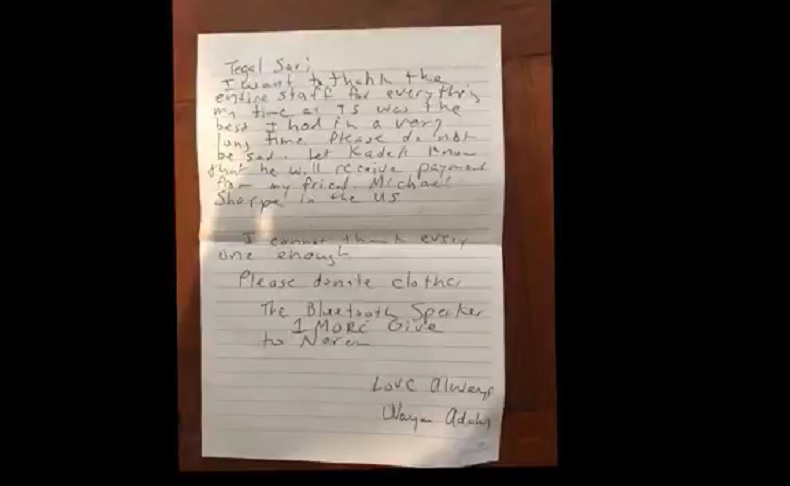 Tegal Sari
I want to thank the
entire staff for everything
my time at TS was the
best I had in a very
long time Please do not
be sad. Let Kadek know
that he will receive payment
from my friend Michael
Sharpe in the US
I cannot thank every
one enough
Please donate clothes
The Bluetooth Speaker
1 MORE Give
to
Love Always